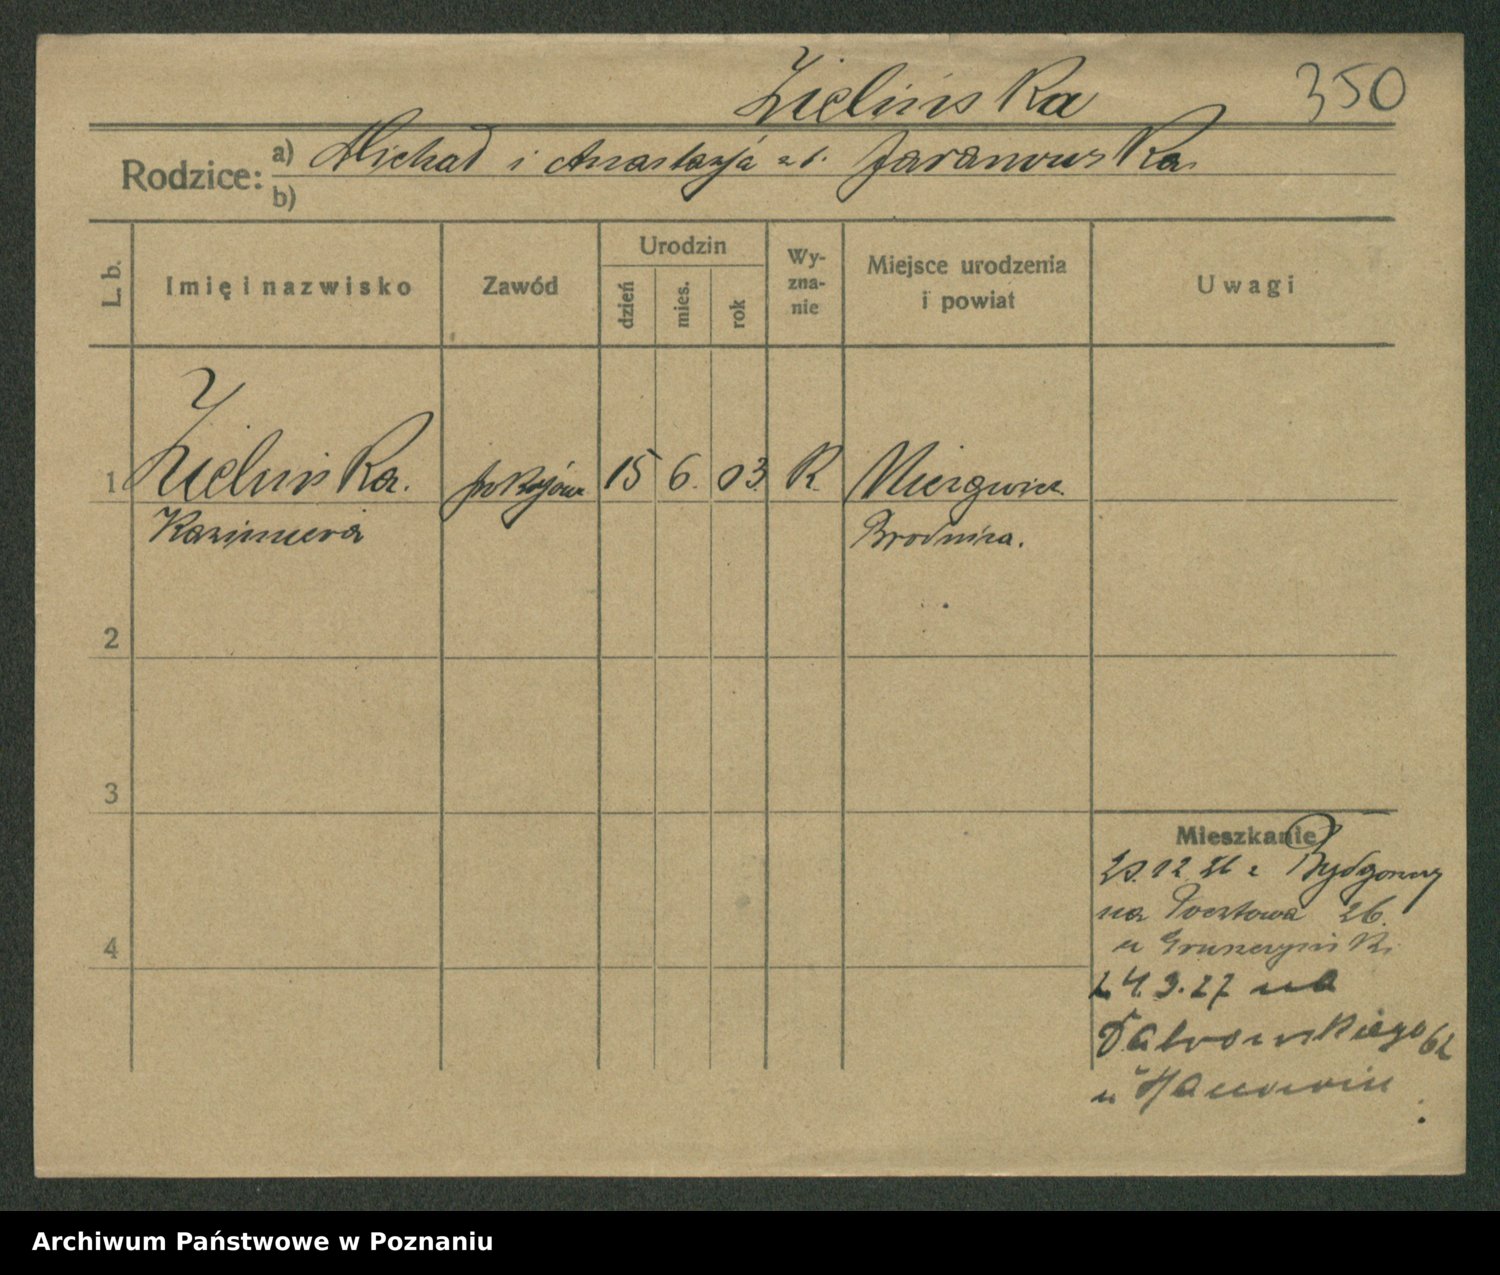 Zielińska 350
Rodzice: a) Michał i Anastazja z d. Jaranowska
b)
L. b.
Imię i nazwisko
Zawód
Urodzin
dzień
mies.
rok
Wy-
zna-
nie
Miejsce urodzenia
i powiat
Uwagi
1 Zielińska. pokojowa 15 6. 03 R.
Kazimiera Brodnica.
2
3
Mieszkanie
29.12.26 z Bydgoszczy
na Pocztowa 26.
4
u
24.3.27 na
Dąbrowskiego 62
u
Archiwum Państwowe w Poznaniu